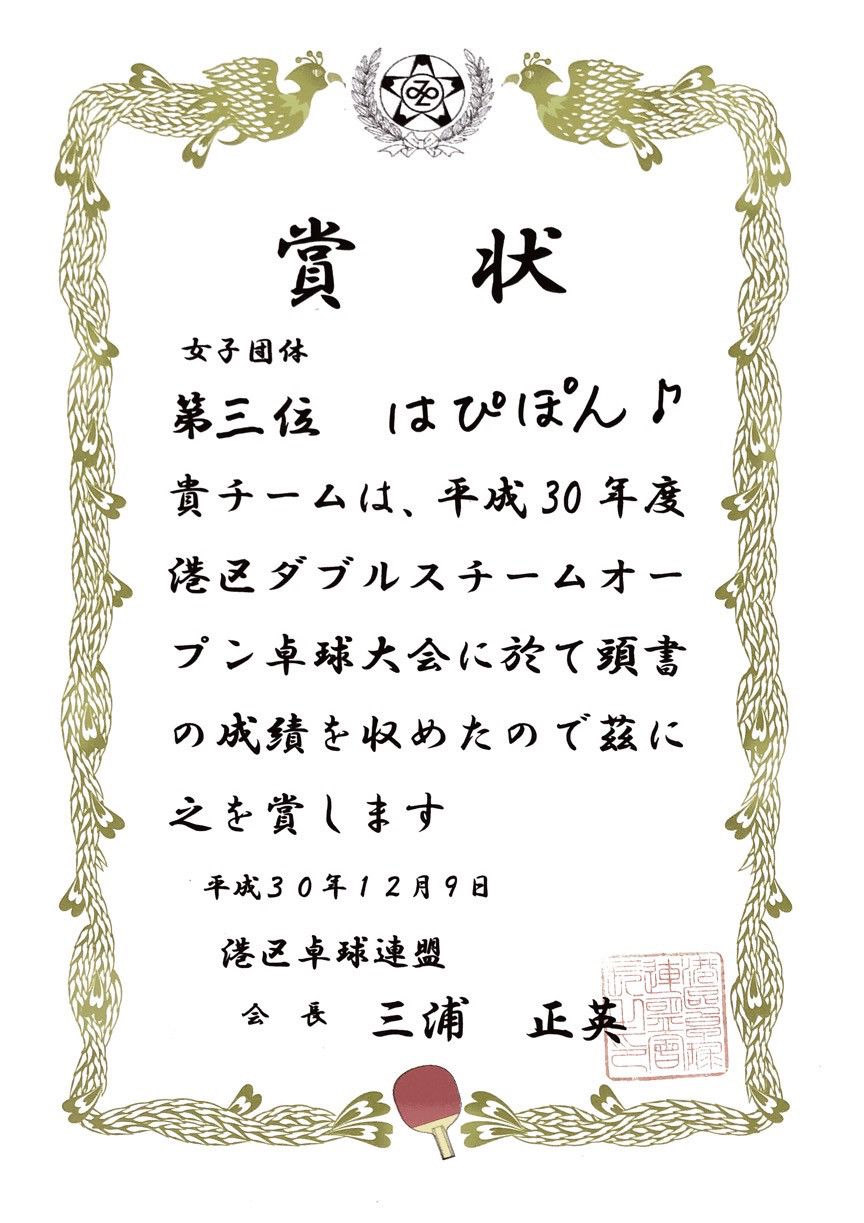 賞 状
女子団体
第三位 はぴぽん♪
貴チームは、平成30年度
港区ダブルスチームオー
プン卓球大会に於て頭書
の成績を収めたので茲に
之を賞します
平成３０年１２月９日
港区卓球連盟
会 長 三浦 正英